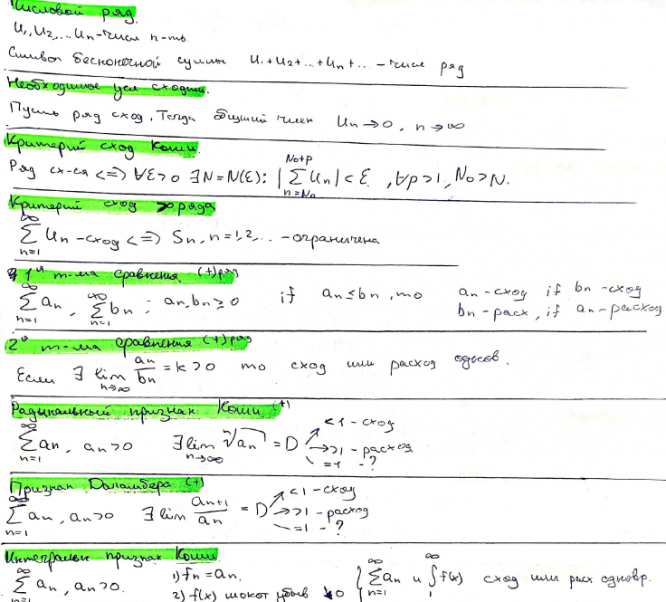 Числовой ряд.
U₁, U₂,... Uₙ - числ п-ть
Символ бесконечной суммы U₁+U₂+..+Uₙ+.. - числ ряд
Необходимое усл сходим.
Пусть ряд сход. Тогда общий член Uₙ→0, n→∞
Критерий сход Коши.
Ряд сх-ся <=> ∀ε>0 ∃N=N(ε): |∑_{n=N₀}^{N₀+p} Uₙ| < ε, ∀p>1, N₀>N.
Критерий сход >ряда
∑_{n=1}^{∞} Uₙ - сход <=> Sₙ, n=1,2,... - ограничена
1ᵃ т-ма сравнения (+) ряд
∑_{n=1}^{∞} aₙ, ∑_{n=1}^{∞} bₙ ; aₙ,bₙ ≥ 0 if aₙ ≤ bₙ, то aₙ - сход if bₙ - сход
bₙ - расх, if aₙ - расход
2ᵃ т-ма сравнения (+) ряд
Если ∃ lim_{n→∞} aₙ/bₙ = k > 0 то сход или расход одноов.
Радикальный признак Коши (+)
∑_{n=1}^{∞} aₙ, aₙ>0 ∃ lim_{n→∞} ⁿ√aₙ = D <1 - сход
>1 - расход
=1 - ?
Признак Даламбера (+)
∑_{n=1}^{∞} aₙ, aₙ>0 ∃ lim aₙ₊₁/aₙ = D <1 - сход
>1 - расход
=1 - ?
Интегральн признак Коши.
∑_{n=1}^{∞} aₙ, aₙ>0. 1) fₙ = aₙ. ∑_{n=1}^{∞} aₙ и ∫_{1}^{∞} f(x) сход или расх одновр.
2) f(x) убыв 0